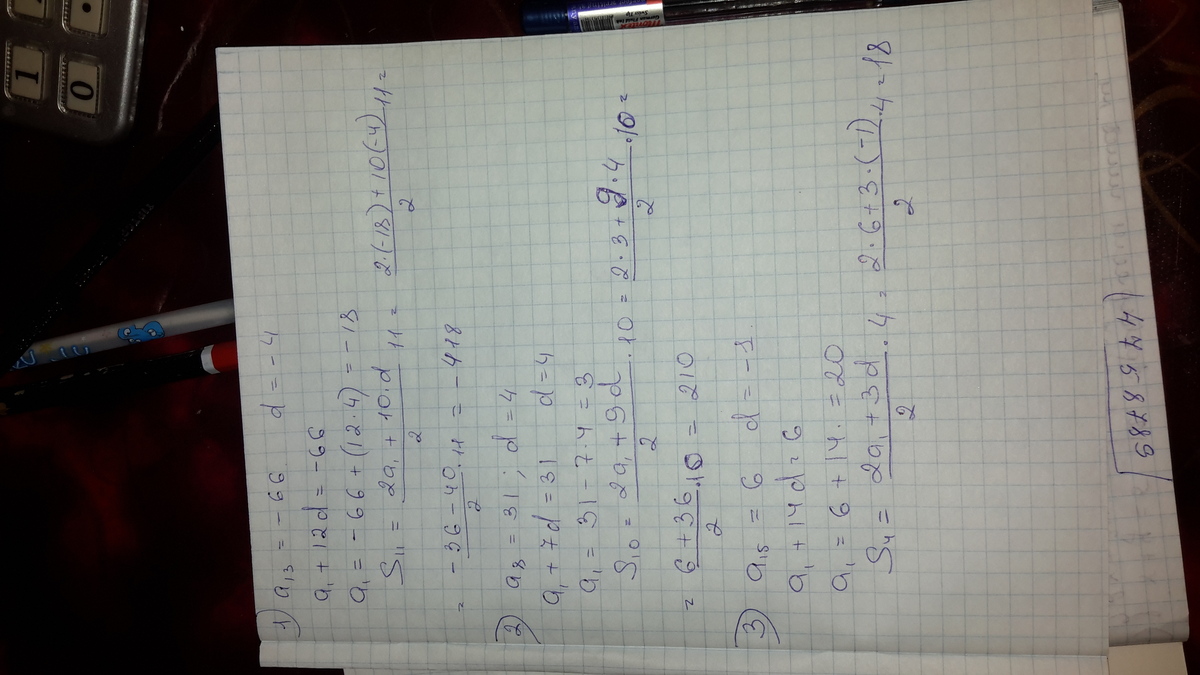 1) a₁₃ = -66   d = -4
a₁ + 12d = -66
a₁ = -66 + (12·4) = -18
S₁₁ = (2a₁ + 10·d)/2 · 11 = (2·(-18) + 10(-4))/2 · 11 =
= (-36 - 40)/2 · 11 = -418
2) a₈ = 31; d = 4
a₁ + 7d = 31   d = 4
a₁ = 31 - 7·4 = 3
S₁₀ = (2a₁ + 9d)/2 · 10 = (2·3 + 9·4)/2 · 10 =
= (6 + 36)/2 · 10 = 210
3) a₁₅ = 6   d = -1
a₁ + 14d = 6
a₁ = 6 + 14· = 20
S₄ = (2a₁ + 3d)/2 · 4 = (2·6 + 3·(-1))/2 · 4 = 18
1
0